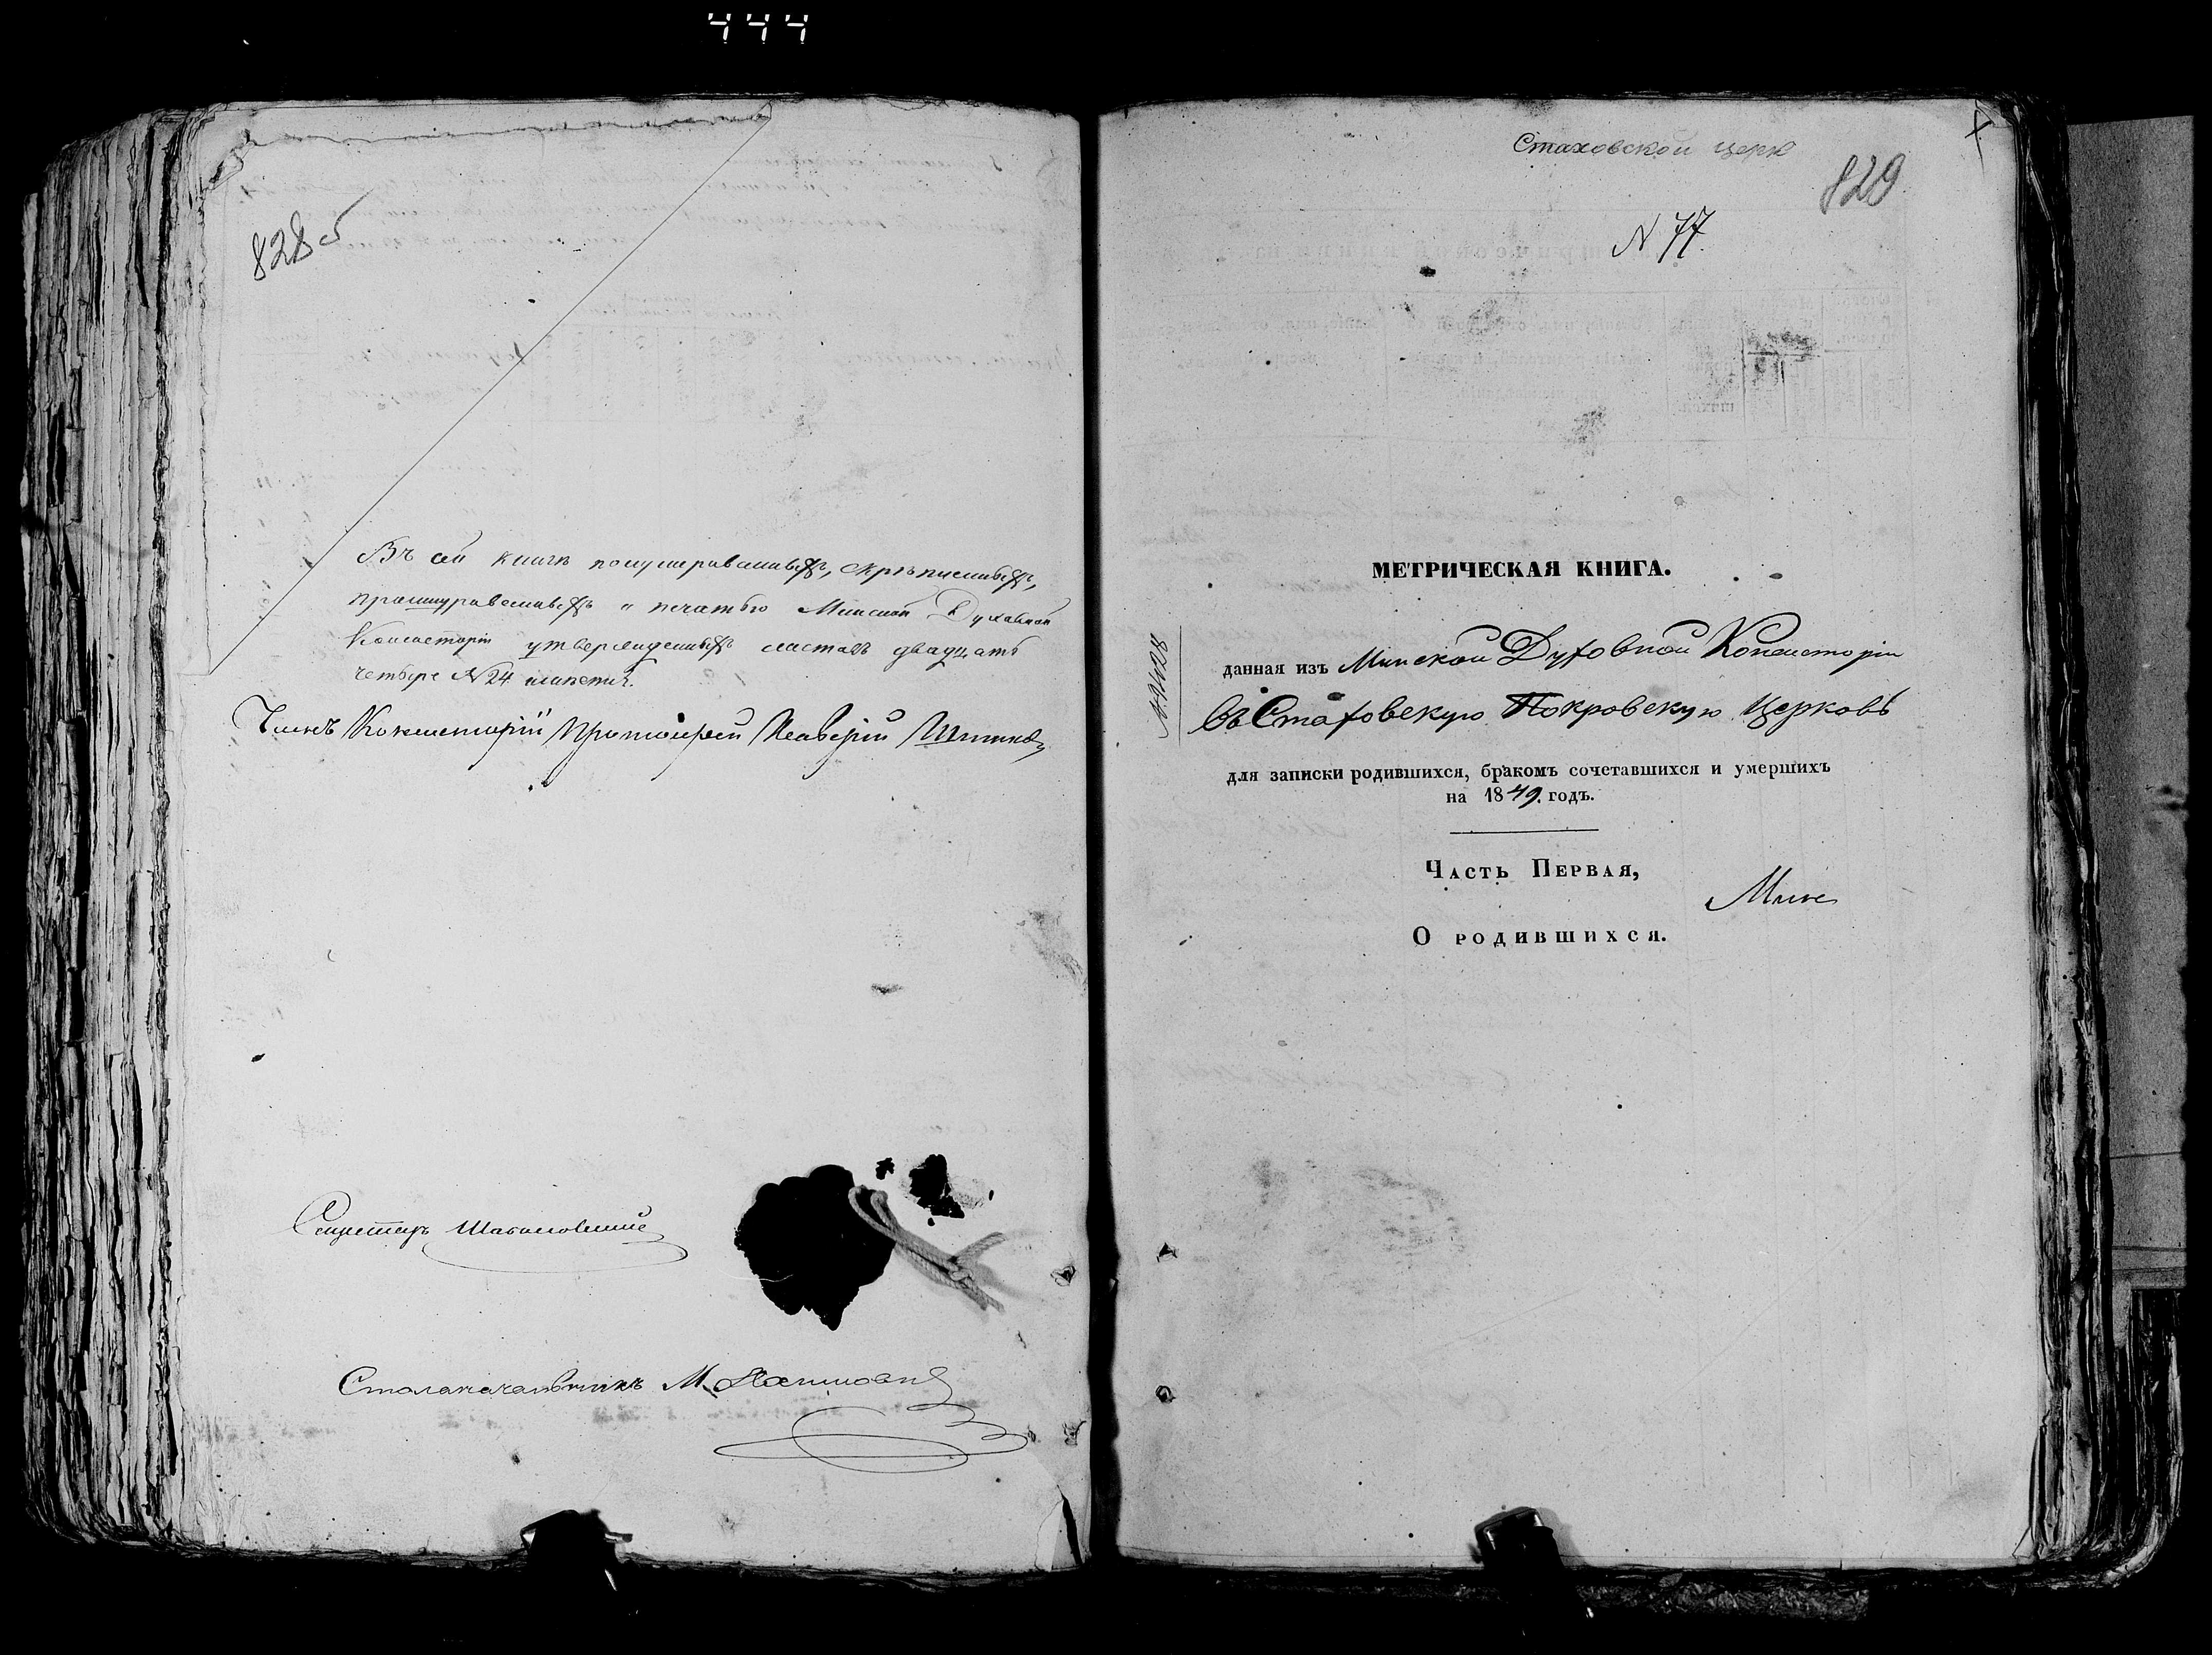 444
828 об
Въ сей книгѣ нонумерованныхъ, скрѣпленныхъ,
прошнурованныхъ и печатью Минской Духовной
Консисторіи утвержденныхъ листовъ двадцать
четыре №24
Членъ Консисторіи Протоіерей
Секретарь
Столоначальникъ М.
Стаховской церк
829
N 77.
МЕТРИЧЕСКАЯ КНИГА.
данная изъ Минской Духовной Консисторіи
въ Стаховскую Покровскую Церковь
для записки родившихся, бракомъ сочетавшихся и умершихъ
на 1849. годъ.
Часть Первая,
О родившихся.